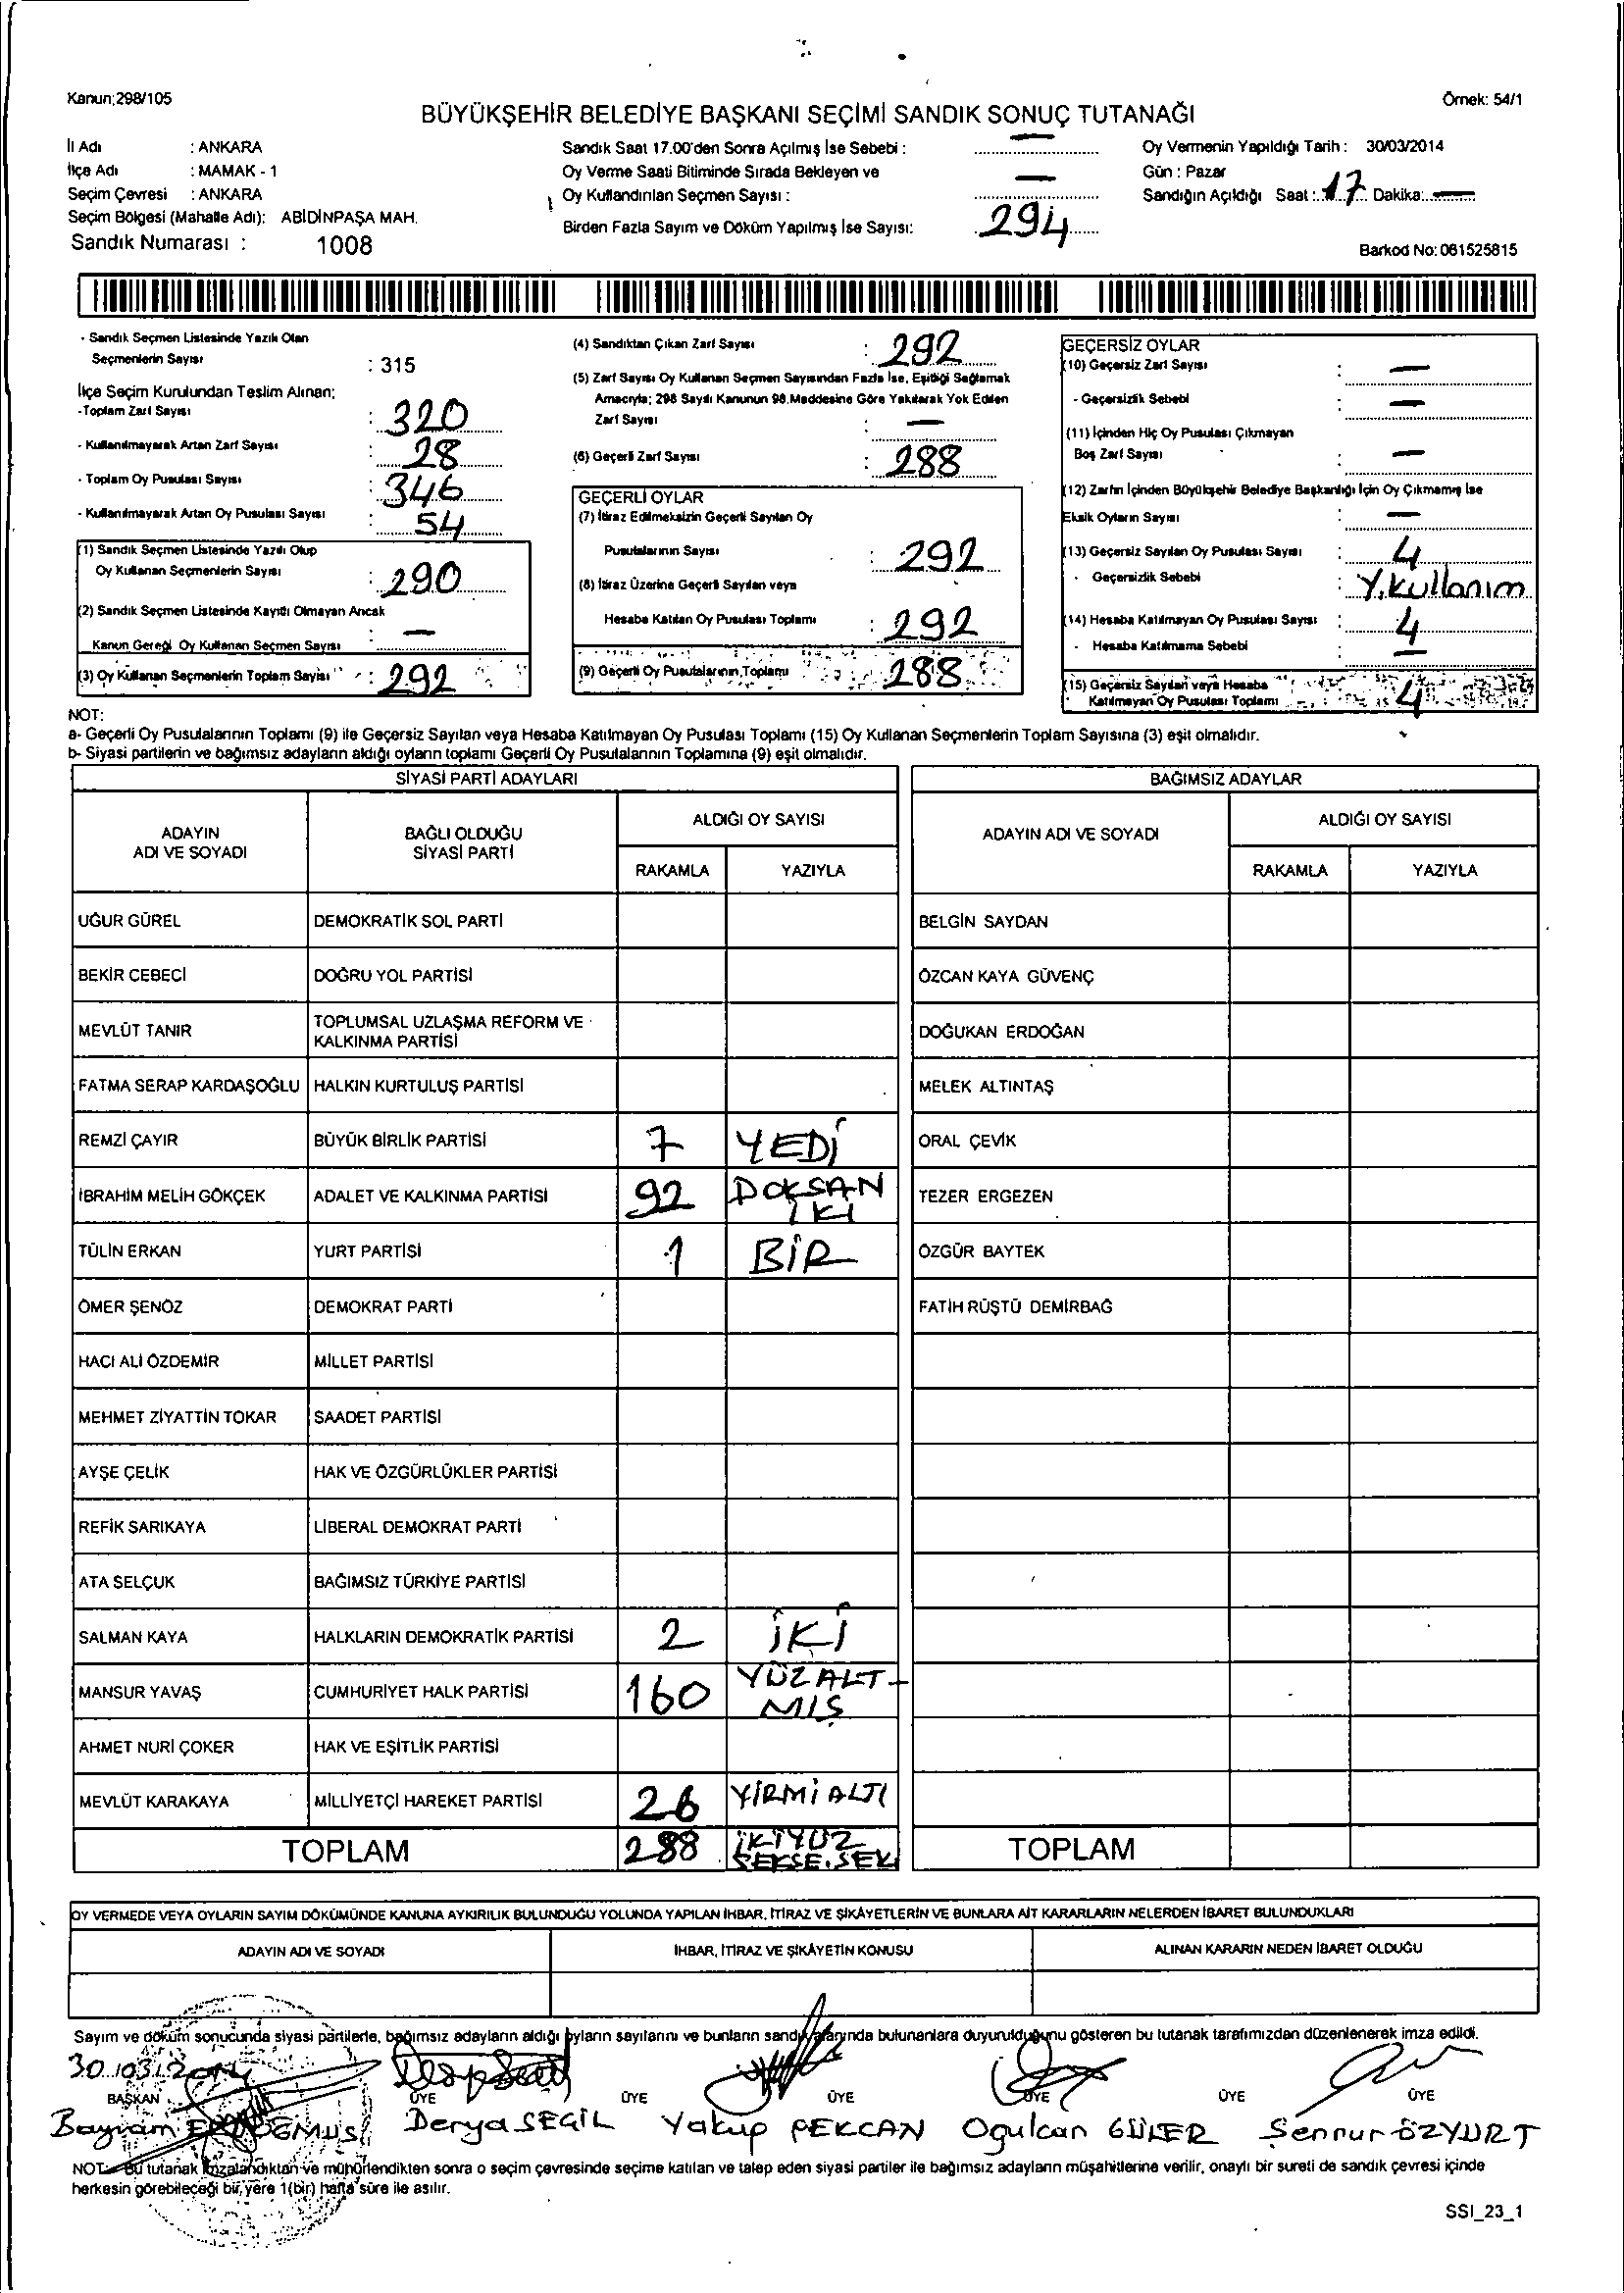 Kanun;298/105
Örnek: 54/1
BÜYÜKŞEHİR BELEDİYE BAŞKANI SEÇİMİ SANDIK SONUÇ TUTANAĞI
İl Adı : ANKARA
İlçe Adı : MAMAK - 1
Seçim Çevresi : ANKARA
Seçim Bölgesi (Mahalle Adı): ABİDİNPAŞA MAH.
Sandık Numarası : 1008
Sandık Saat 17.00'den Sonra Açılmış İse Sebebi : —
Oy Verme Saati Bitiminde Sırada Bekleyen ve
Oy Kullandırılan Seçmen Sayısı : —
Birden Fazla Sayım ve Döküm Yapılmış İse Sayısı: 294
Oy Vermenin Yapıldığı Tarih : 30/03/2014
Gün : Pazar
Sandığın Açıldığı Saat : 17 Dakika: —
Barkod No: 061525815
- Sandık Seçmen Listesinde Yazılı Olan
Seçmenlerin Sayısı : 315
İlçe Seçim Kurulundan Teslim Alınan;
-Toplam Zarf Sayısı : 320
- Kullanılmayarak Artan Zarf Sayısı : 28
- Toplam Oy Pusulası Sayısı : 346
- Kullanılmayarak Artan Oy Pusulası Sayısı : 54
(1) Sandık Seçmen Listesinde Yazılı Olup
Oy Kullanan Seçmenlerin Sayısı : 290
(2) Sandık Seçmen Listesinde Kayıtlı Olmayan Ancak
Kanun Gereği Oy Kullanan Seçmen Sayısı : —
(3) Oy Kullanan Seçmenlerin Toplam Sayısı : 292
(4) Sandıktan Çıkan Zarf Sayısı : 292
(5) Zarf Sayısı Oy Kullanan Seçmen Sayısından Fazla İse, Eşitliği Sağlamak
Amacıyla; 298 Sayılı Kanunun 98.Maddesine Göre Yakılarak Yok Edilen
Zarf Sayısı : —
(6) Geçerli Zarf Sayısı : 288
GEÇERLİ OYLAR
(7) İtiraz Edilmeksizin Geçerli Sayılan Oy
Pusulalarının Sayısı : 292
(8) İtiraz Üzerine Geçerli Sayılan veya
Hesaba Katılan Oy Pusulası Toplamı : 292
(9) Geçerli Oy Pusulalarının Toplamı : 288
GEÇERSİZ OYLAR
(10) Geçersiz Zarf Sayısı : —
- Geçersizlik Sebebi : —
(11) İçinden Hiç Oy Pusulası Çıkmayan
Boş Zarf Sayısı : —
(12) Zarfın İçinden Büyükşehir Belediye Başkanlığı İçin Oy Çıkmamış İse
Eksik Oyların Sayısı : —
(13) Geçersiz Sayılan Oy Pusulası Sayısı : 4
- Geçersizlik Sebebi : Y.Kullanım
(14) Hesaba Katılmayan Oy Pusulası Sayısı : 4
- Hesaba Katılmama Sebebi : —
(15) Geçersiz Sayılan veya Hesaba
Katılmayan Oy Pusulası Toplamı : 4
NOT:
a- Geçerli Oy Pusulalarının Toplamı (9) ile Geçersiz Sayılan veya Hesaba Katılmayan Oy Pusulası Toplamı (15) Oy Kullanan Seçmenlerin Toplam Sayısına (3) eşit olmalıdır.
b- Siyasi partilerin ve bağımsız adayların aldığı oyların toplamı Geçerli Oy Pusulalarının Toplamına (9) eşit olmalıdır.
SİYASİ PARTİ ADAYLARI
ADAYIN ADI VE SOYADI BAĞLI OLDUĞU SİYASİ PARTİ ALDIĞI OY SAYISI
RAKAMLA YAZIYLA
UĞUR GÜREL DEMOKRATİK SOL PARTİ
BEKİR CEBECİ DOĞRU YOL PARTİSİ
MEVLÜT TANIR TOPLUMSAL UZLAŞMA REFORM VE KALKINMA PARTİSİ
FATMA SERAP KARDAŞOĞLU HALKIN KURTULUŞ PARTİSİ
REMZİ ÇAYIR BÜYÜK BİRLİK PARTİSİ 7 YEDİ
İBRAHİM MELİH GÖKÇEK ADALET VE KALKINMA PARTİSİ 92 DOKSAN İKİ
TÜLİN ERKAN YURT PARTİSİ 1 BİR
ÖMER ŞENÖZ DEMOKRAT PARTİ
HACI ALİ ÖZDEMİR MİLLET PARTİSİ
MEHMET ZİYATTİN TOKAR SAADET PARTİSİ
AYŞE ÇELİK HAK VE ÖZGÜRLÜKLER PARTİSİ
REFİK SARIKAYA LİBERAL DEMOKRAT PARTİ
ATA SELÇUK BAĞIMSIZ TÜRKİYE PARTİSİ
SALMAN KAYA HALKLARIN DEMOKRATİK PARTİSİ 2 İKİ
MANSUR YAVAŞ CUMHURİYET HALK PARTİSİ 160 YÜZALT-MIŞ
AHMET NURİ ÇOKER HAK VE EŞİTLİK PARTİSİ
MEVLÜT KARAKAYA MİLLİYETÇİ HAREKET PARTİSİ 26 YİRMİALTI
TOPLAM 288 İKİYÜZ SEKSE.SEK
BAĞIMSIZ ADAYLAR
ADAYIN ADI VE SOYADI ALDIĞI OY SAYISI
RAKAMLA YAZIYLA
BELGİN SAYDAN
ÖZCAN KAYA GÜVENÇ
DOĞUKAN ERDOĞAN
MELEK ALTINTAŞ
ORAL ÇEVİK
TEZER ERGEZEN
ÖZGÜR BAYTEK
FATİH RÜŞTÜ DEMİRBAĞ
TOPLAM
OY VERMEDE VEYA OYLARIN SAYIM DÖKÜMÜNDE KANUNA AYKIRILIK BULUNDUĞU YOLUNDA YAPILAN İHBAR, İTİRAZ VE ŞİKÂYETLERİN VE BUNLARA AİT KARARLARIN NELERDEN İBARET BULUNDUKLARI
ADAYIN ADI VE SOYADI İHBAR, İTİRAZ VE ŞİKÂYETİN KONUSU ALINAN KARARIN NEDEN İBARET OLDUĞU
Sayım ve döküm sonucunda siyasi partilerle, bağımsız adayların aldığı oyların sayılarını ve bunların sandık alanında bulunanlara duyurulduğunu gösteren bu tutanak tarafımızdan düzenlenerek imza edildi.
30.03.2014
BAŞKAN ÜYE ÜYE ÜYE ÜYE ÜYE ÜYE
Bayram Derya SEGİL Yakup PEKCAN Oğulcan GÜLER Şennur ÖZYURT
NOT: Bu tutanak imzalandıktan ve mühürlendikten sonra o seçim çevresinde seçime katılan ve talep eden siyasi partiler ile bağımsız adayların müşahitlerine verilir, onaylı bir sureti de sandık çevresi içinde
herkesin görebileceği bir yere 1(bir) hafta süre ile asılır.
SSI_23_1